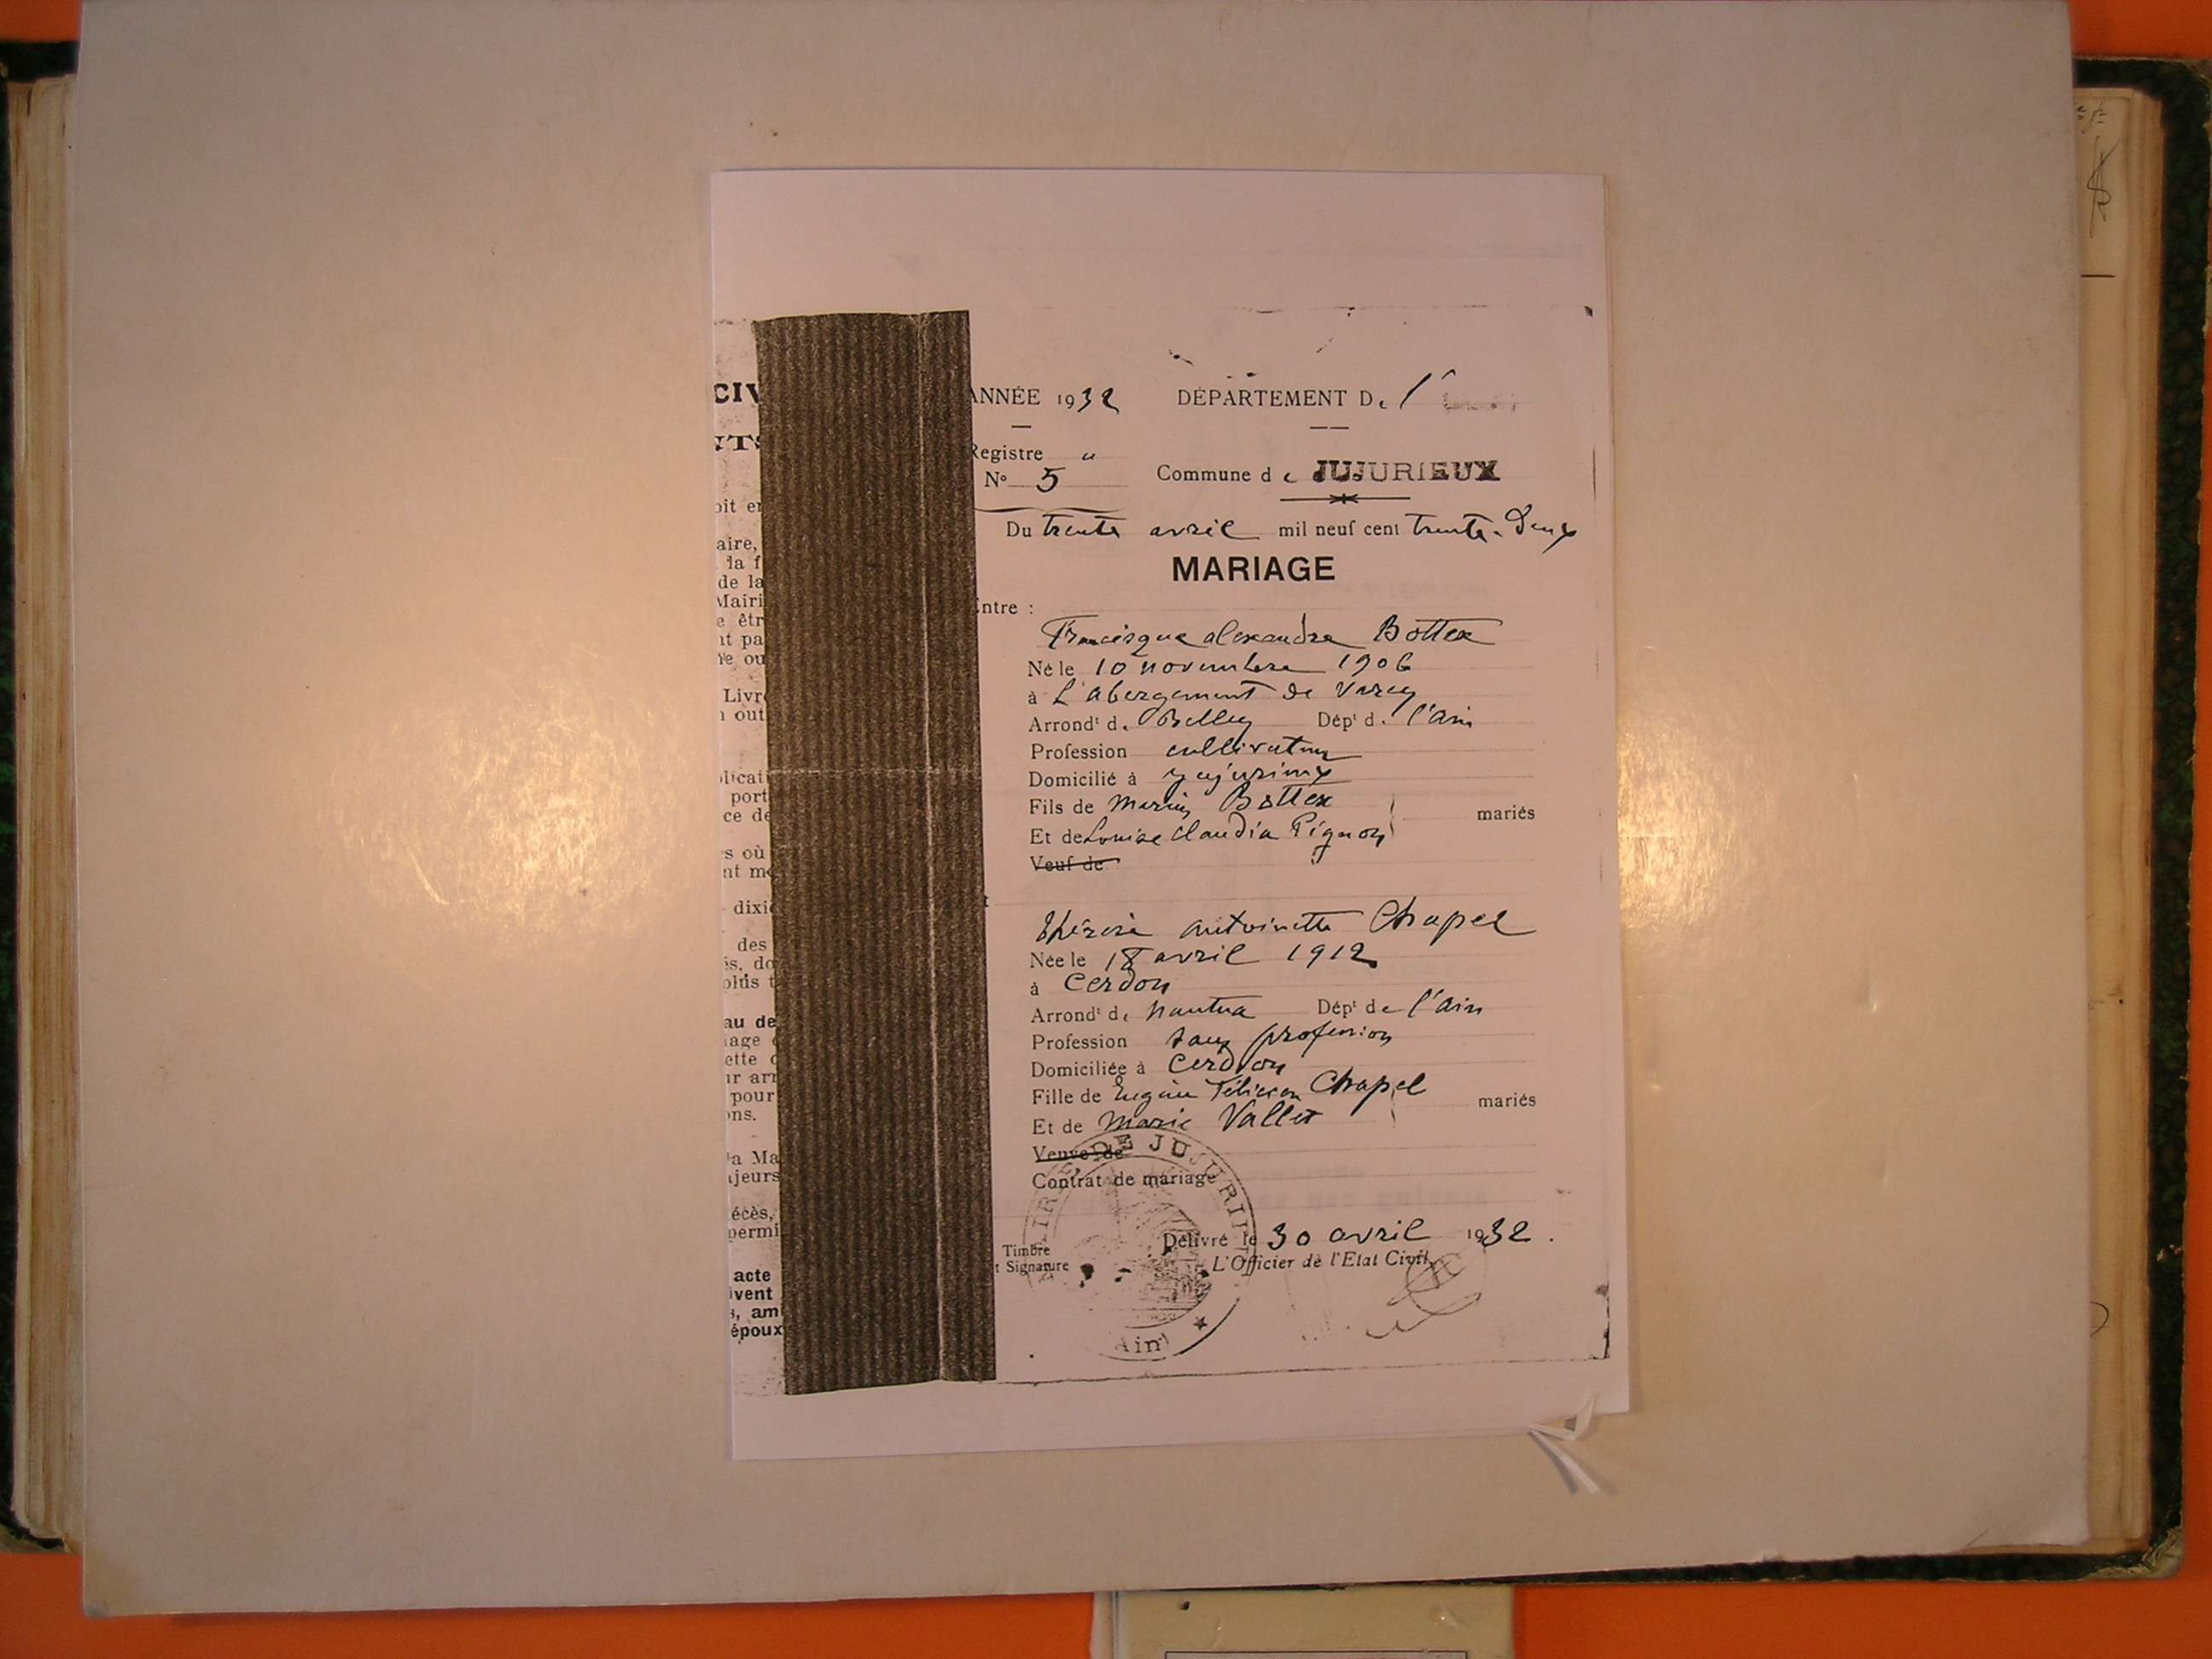 CIV
NTS
oit en
aire,
la f
de la
Mairi
e êtr
nt pa
ou
Livr
n out
plicati
port
ce de
s où
nt m
dixi
des
és, do
plus t
au de
iage
ette
ur arr
pour
ons.
la Ma
ajeurs
écès,
permi
acte
ivent
s, am
époux
ANNÉE 1932 DÉPARTEMENT De l'
Registre "
No 5 Commune de JUJURIEUX
Du trente avril mil neuf cent trente-deux
MARIAGE
Entre :
Francisque alexandre Bottex
Né le 10 novembre 1906
à L'abergement de Varey
Arrondt de Belley Dépt de l'ain
Profession cultivateur
Domicilié à Jujurieux
Fils de Marius Bottex
Et de Louise Claudia Pignon mariés
Veuf de
t
Thérèse antoinette Chapel
Née le 18 avril 1912
à Cerdon
Arrondt de nantua Dépt de l'ain
Profession sans profession
Domiciliée à Cerdon
Fille de Eugène Chapel
Et de marie Vallet mariés
Veuve de
Contrat de mariage
Délivré le 30 avril 1932.
Timbre
t Signature
L'Officier de l'Etat Civil,
MAIRIE DE JUJURIEUX
(Ain)